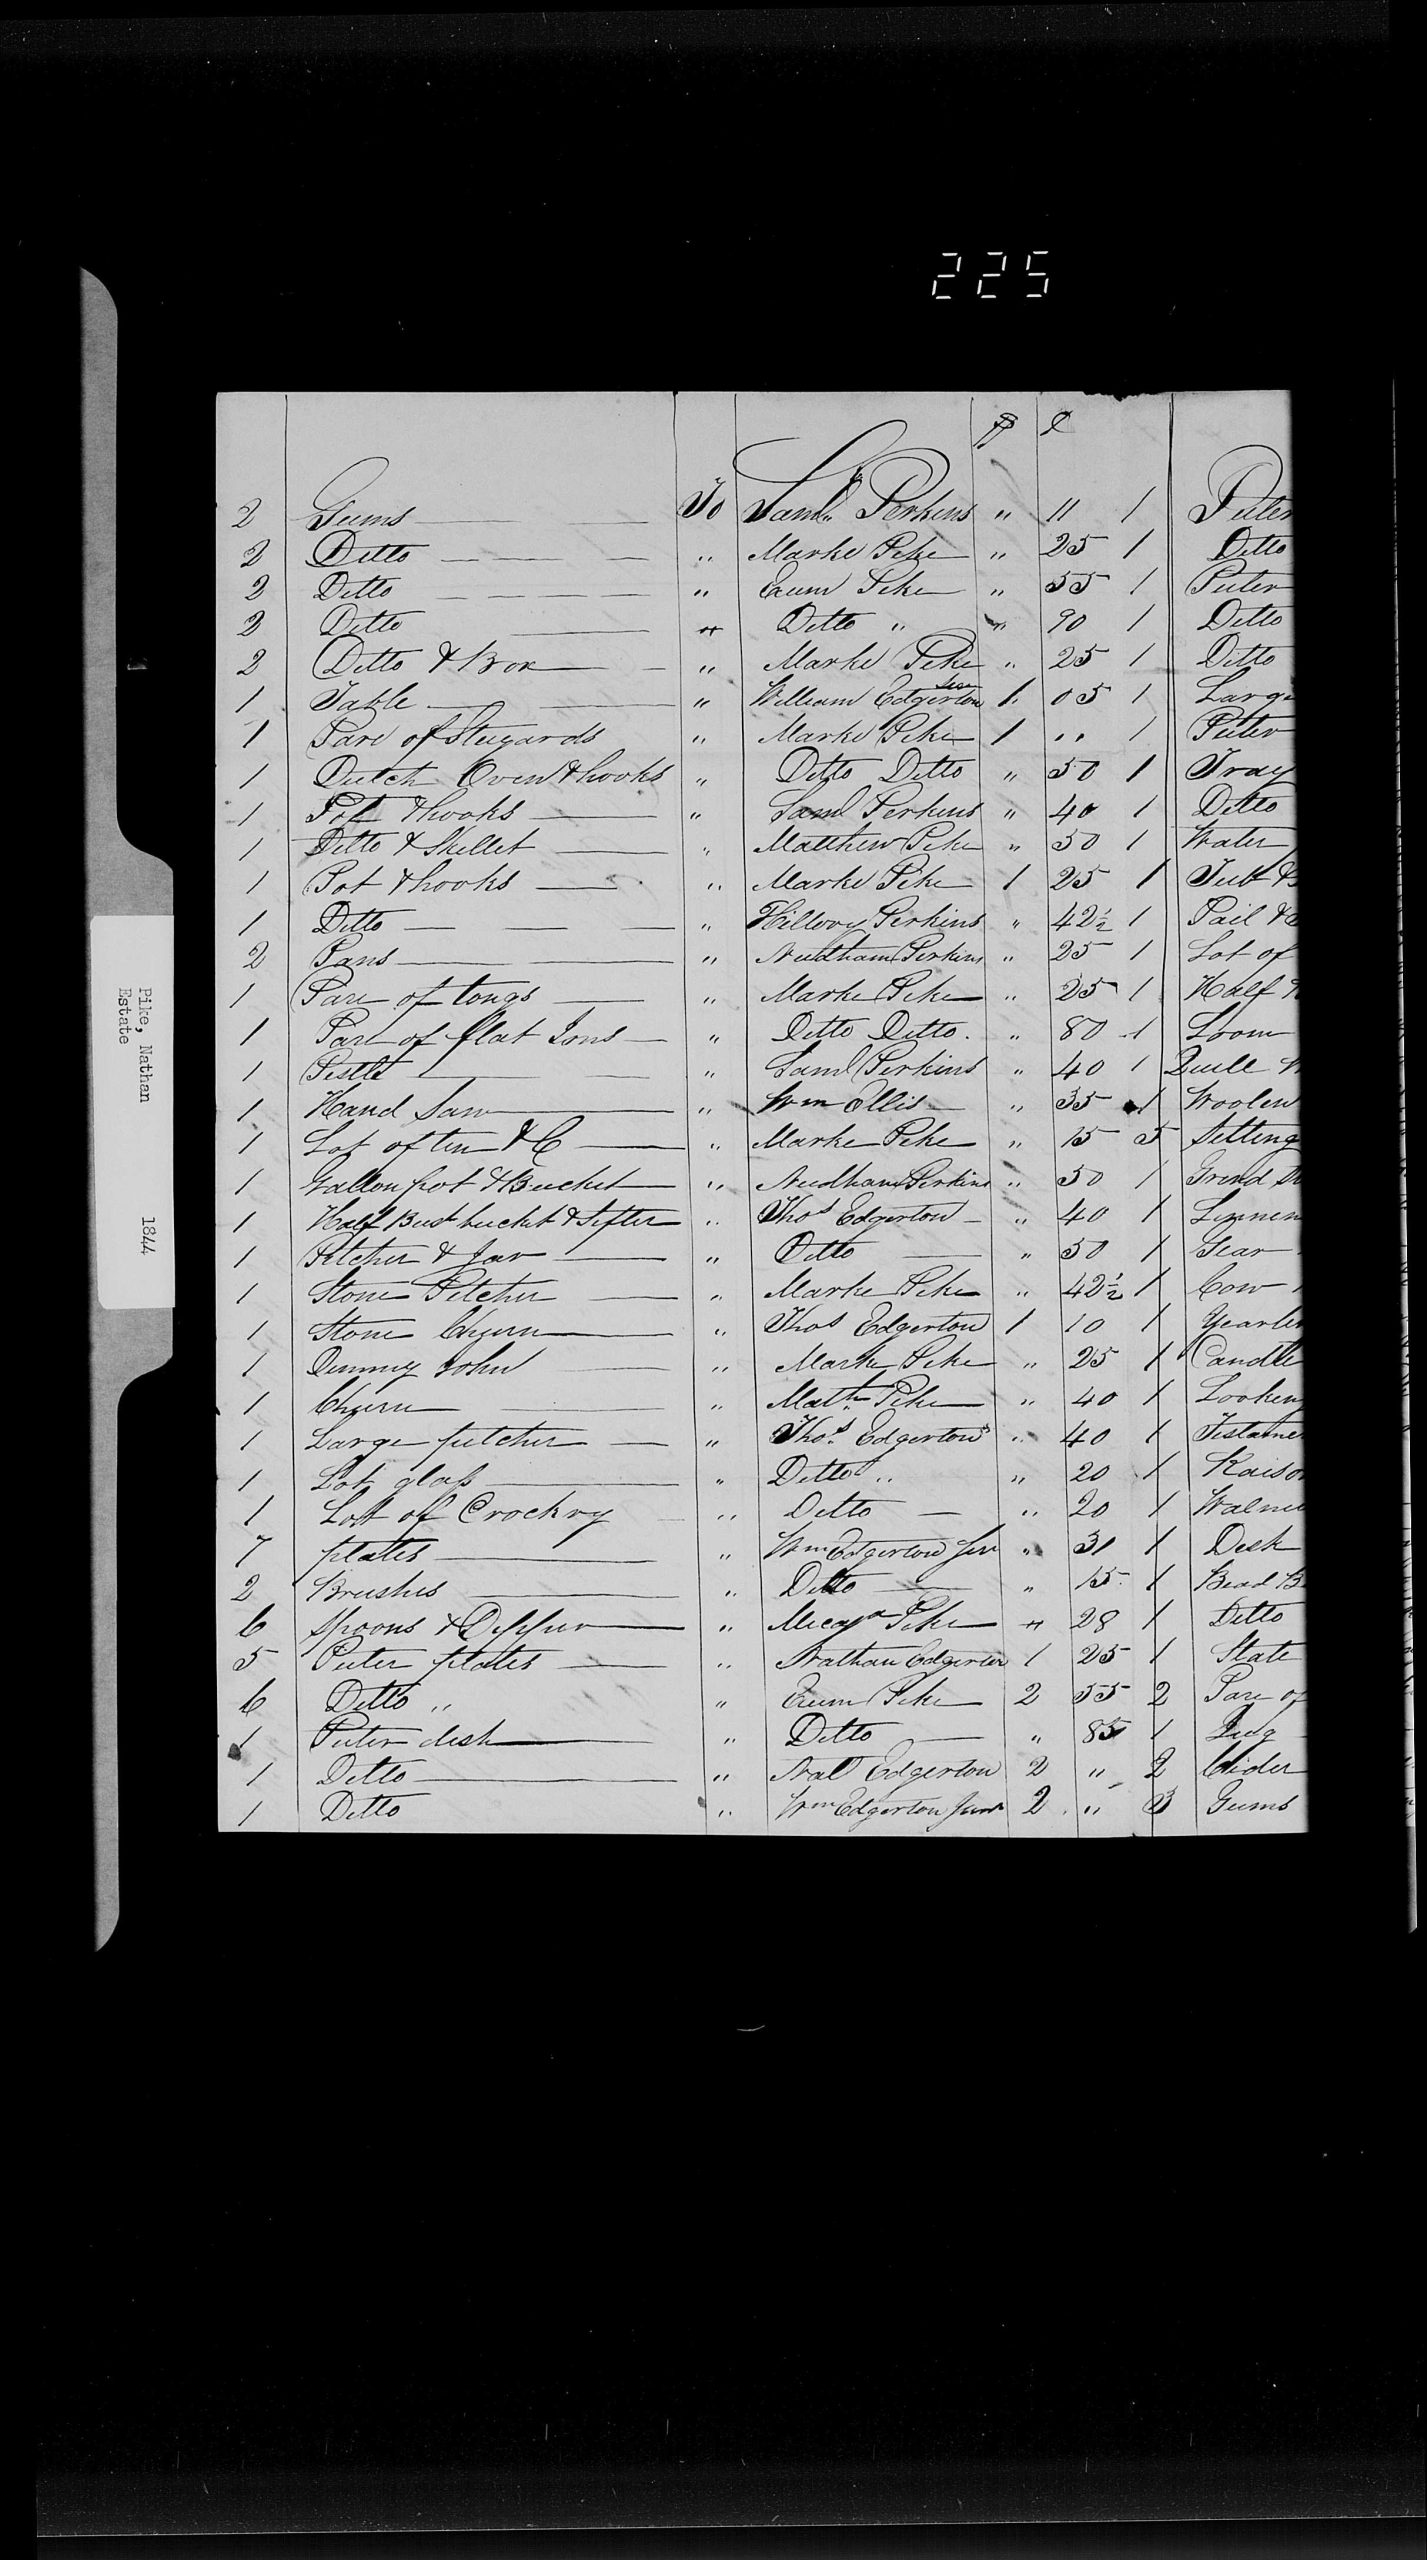 225
$ c
2 Gums To Saml. Perkins " 11 1 Puter
2 Ditto " Marke Pike " 25 1 Ditto
2 Ditto " Exum Pike " 55 1 Puter
2 Ditto " Ditto " " 90 1 Ditto
2 Ditto & Box " Marke Pike " 25 1 Ditto
1 Table " William Edgerton Sen 1 05 1 Large
1 Pare of Stugards " Marke Pike 1 " 1 Puter
1 Dutch Oven & hooks " Ditto Ditto " 50 1 Tray
1 Pot & hooks " Saml Perkins " 40 1 Ditto
1 Ditto & Skillet " Matthew Pike " 50 1 Water
1 Pot & hooks " Marke Pike 1 25 1 Tub &
1 Ditto " Hillory Perkins " 42½ 1 Pail &
2 Pans " Needham Perkins " 25 1 Lot of
1 Pare of tongs " Marke Pike " 25 1 Half
1 Pare of flat Irons " Ditto Ditto. " 80 1 Loom
1 Pistle " Saml Perkins " 40 1 Quill
1 Hand Saw " Wm Ellis " 35 1 Woolen
1 Lot of tin & C " Marke Pike " 15 5 Setting
1 Gallon pot & Bucket " Needham Perkins " 50 1 Grind
1 Half Bust bucket & Sifter " Thos Edgerton " 40 1 Linnen
1 Pitcher & Jar " Ditto " 50 1 Gear
1 Stone Pitcher " Marke Pike " 42½ 1 Cow
1 Stone Churn " Thos Edgerton 1 10 1 Yearlin
1 Dimmy John " Marke Pike " 25 1 Candle
1 Churn " Math. Pike " 40 1 Looking
1 Large pitcher " Thos. Edgerton " 40 1 Testame
1 Lot glass " Ditto " " 20 1 Raisor
1 Lott of Crockry " Ditto " 20 1 Walnu
7 plates " Wm Edgerton Jur " 31 1 Desk
2 Brushes " Ditto " 15 1 Bead B
6 Spoons & Dipper " Micaja Pike " 28 1 Ditto
5 Puter plates " Nathan Edgerton 1 25 1 State
6 Ditto " " Exum Pike 2 55 2 Pare of
1 Puter dish " Ditto " 85 1 Jug
1 Ditto " Nat Edgerton 2 " 2 Cider
1 Ditto " Wm Edgerton Junr 2 " 3 Gums
Pike, Nathan 1844
Estate